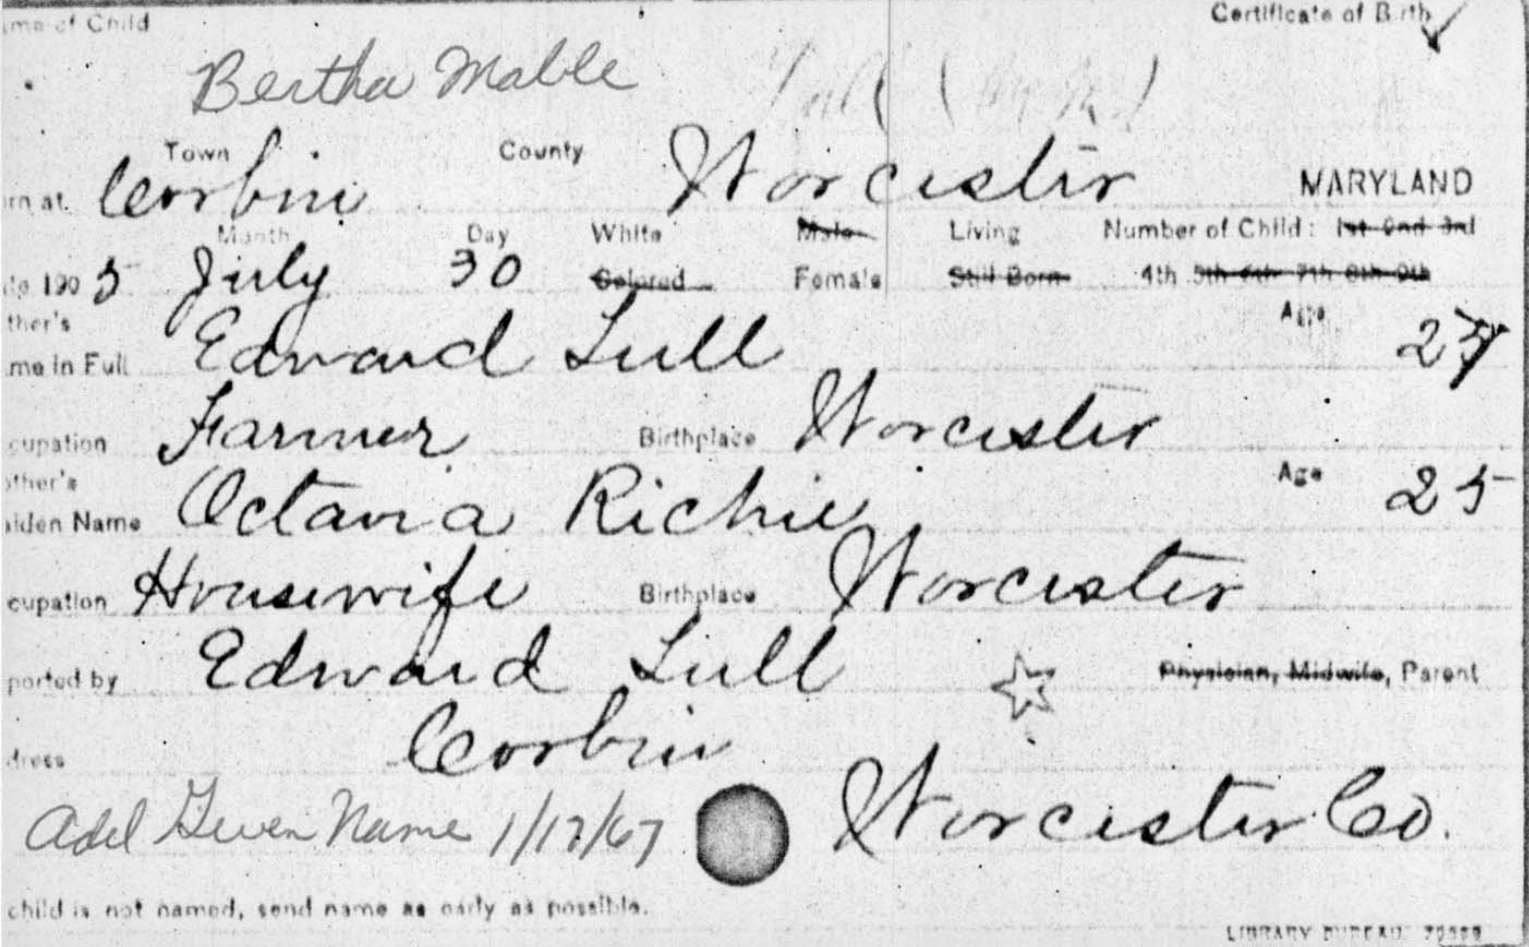 ame of Child Certificate of Birth
Bertha Mable
Town County
rn at. Corbin Worcester MARYLAND
Month Day White Male Living Number of Child: 1st 2nd 3rd
te, 1905 July 30 Colored Female Still Born 4th 5th 6th 7th 8th 9th
ther's Age
me in Full Edward Lull 27
cupation Farmer Birthplace Worcester
other's Age
aiden Name Octavia Richie 25
cupation Housewife Birthplace Worcester
ported by Edward Lull Physician, Midwife, Parent
dress Corbin
Worcester Co.
Add Given Name 1/17/67
child is not named, send name as early as possible.
LIBRARY BUREAU